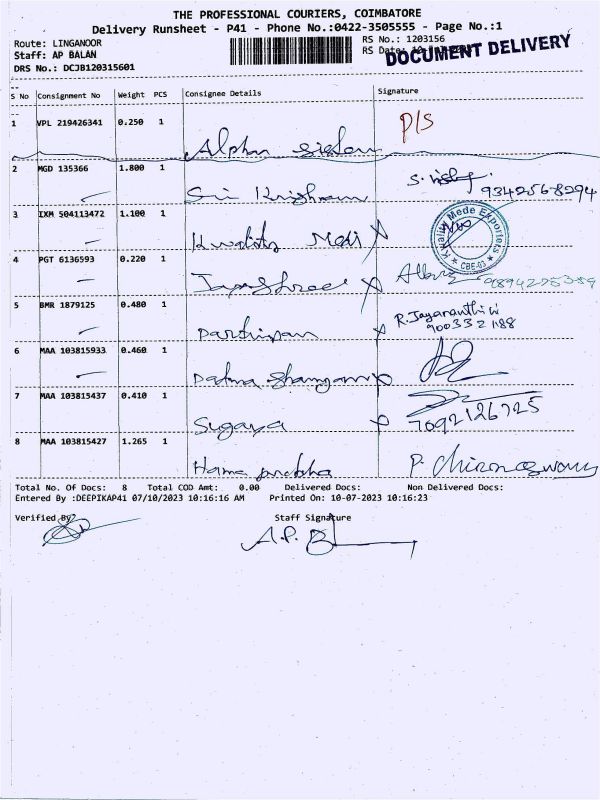 THE PROFESSIONAL COURIERS, COIMBATORE
Delivery Runsheet - P41 - Phone No.:0422-3505555 - Page No.:1
Route: LINGANOOR
RS No.: 1203156
Staff: AP BALAN
RS Date:
DOCUMENT DELIVERY
DRS No.: DCJB120315601
S No Consignment No Weight PCS Consignee Details Signature
1 VPL 219426341 0.250 1 Alpha P/S
2 MGD 135366 1.800 1 Sri Krishnam 9342568294
3 IXM 504113472 1.100 1 Kwality Medi
Kwality Mede Exporters
CBE-03
4 PGT 6136593 0.220 1 Jayashree
5 BMR 1879125 0.480 1 Parthipan R.Jayaranthini
6 MAA 103815933 0.460 1
7 MAA 103815437 0.410 1 Sugaya 7092126725
8 MAA 103815427 1.265 1 Hama prabha
Total No. Of Docs: 8 Total COD Amt: 0.00 Delivered Docs: Non Delivered Docs:
Entered By :DEEPIKAP41 07/10/2023 10:16:16 AM Printed On: 10-07-2023 10:16:23
Verified By
Staff Signature
A.P. B